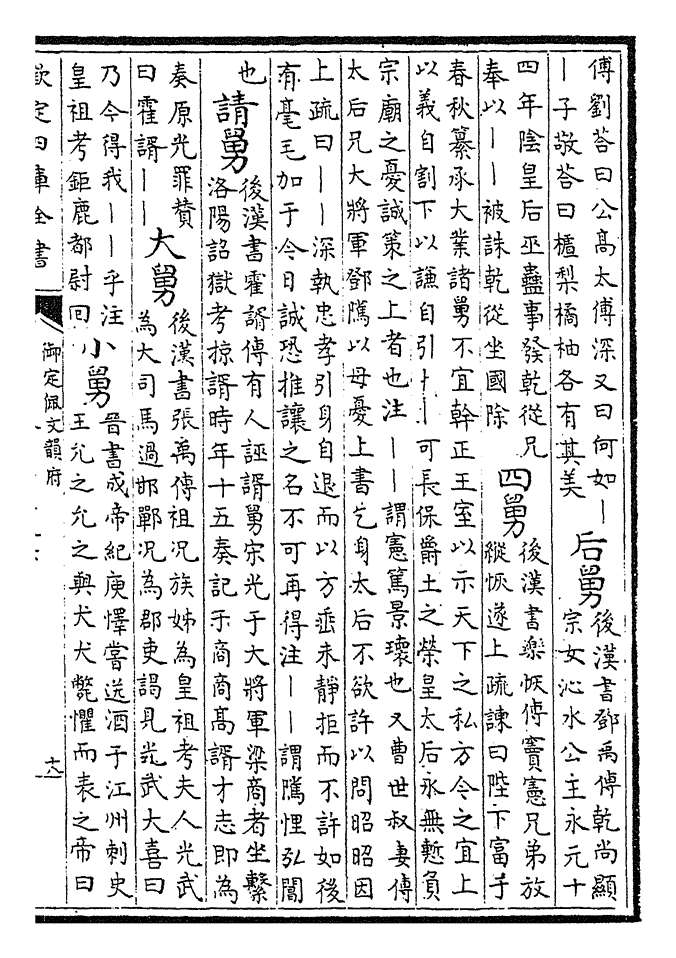 傅劉荅曰公髙太傅深又曰何如丨
丨子敬荅曰樝梨橘柚各有其美
后舅
後漢書鄧禹傳乾尚顯
宗女沁水公主永元十
四年陰皇后巫蠱事發乾從兄
奉以丨丨被誅乾從坐國除
四舅
後漢書樂恢傳竇憲兄弟放
縱恢遂上疏諫曰陛下富于
春秋纂承大業諸舅不宜幹正王室以示天下之私方今之宜上
以義自割下以謙自引丨丨可長保爵土之榮皇太后永無慙負
宗廟之憂誠策之上者也注丨丨謂憲篤景瓌也又曹世叔妻傳
太后兄大將軍鄧騭以母憂上書乞身太后不欲許以問昭昭因
上疏曰丨丨深執忠孝引身自退而以方垂未靜拒而不許如後
有毫毛加于今日誠恐推讓之名不可再得注丨丨謂騭悝弘閶
也
請舅
後漢書霍諝傳有人誣諝舅宋光于大將軍梁商者坐繫
洛陽詔獄考掠諝時年十五奏記于商商髙諝才志即為
奏原光罪贊
曰霍諝丨丨
大舅
後漢書張禹傳祖況族姊為皇祖考夫人光武
為大司馬過邯鄲況為郡吏謁見光武大喜曰
乃今得我丨丨乎注
皇祖考鉅鹿都尉回
小舅
晉書成帝紀庾懌嘗送酒于江州刺史
王允之允之與犬犬斃懼而表之帝曰
欽定四庫全書
御定佩文韻府